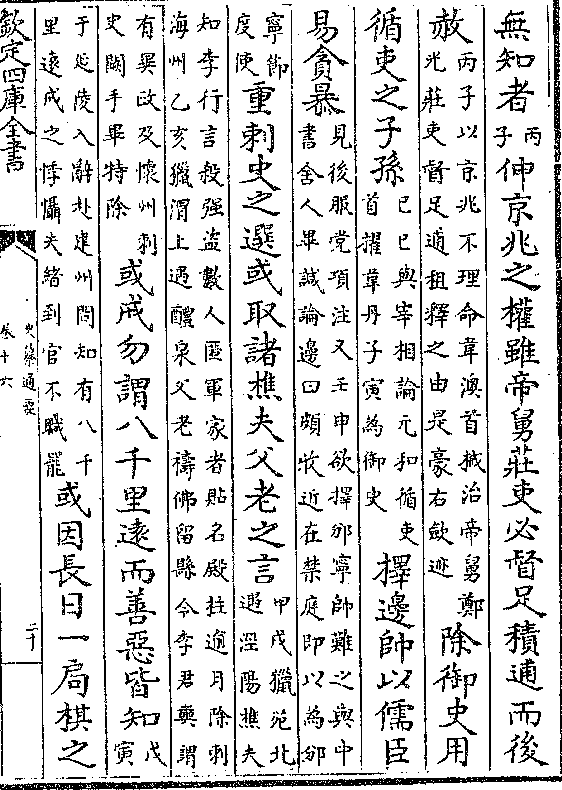 無知者丙子伸京兆之權雖帝舅莊吏必督足積逋而後
赦丙子以京兆不理命韋澳首械治帝舅鄭光莊吏督足逋租釋之由是豪右歛迹除御史用
循吏之子孫己巳與宰相論元和循吏首擢韋丹子寅為御史擇邊帥以儒臣
易貪暴見後服党項注又壬申欲擇邠寧帥難之與中書舍人畢諴論邊曰頗牧近在禁庭即以為邠
寧節度使重刺史之選或取諸樵夫父老之言甲戌獵苑北遇涇陽樵夫
知李行言殺强盗數人匿軍家者貼名殿柱逾月除刺海州乙亥獵渭上過醴泉父老禱佛留縣令李君奭謂
有異政及懷州刺史闕手畢特除或戒勿謂八千里遠而善惡皆知戊寅
于延陵入辭赴建州問知有八千里遠戒之悸懾失緒到官不職罷或因長日一局棋之
欽定四庫全書
史纂通要
卷十六
二十